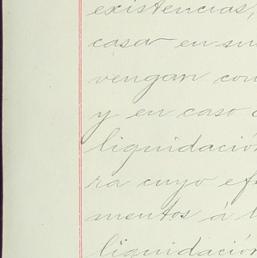 existencias,
casar en su
vengan con
y en caso
liquidació
ra cuyo efe
mentos á l
liquidación